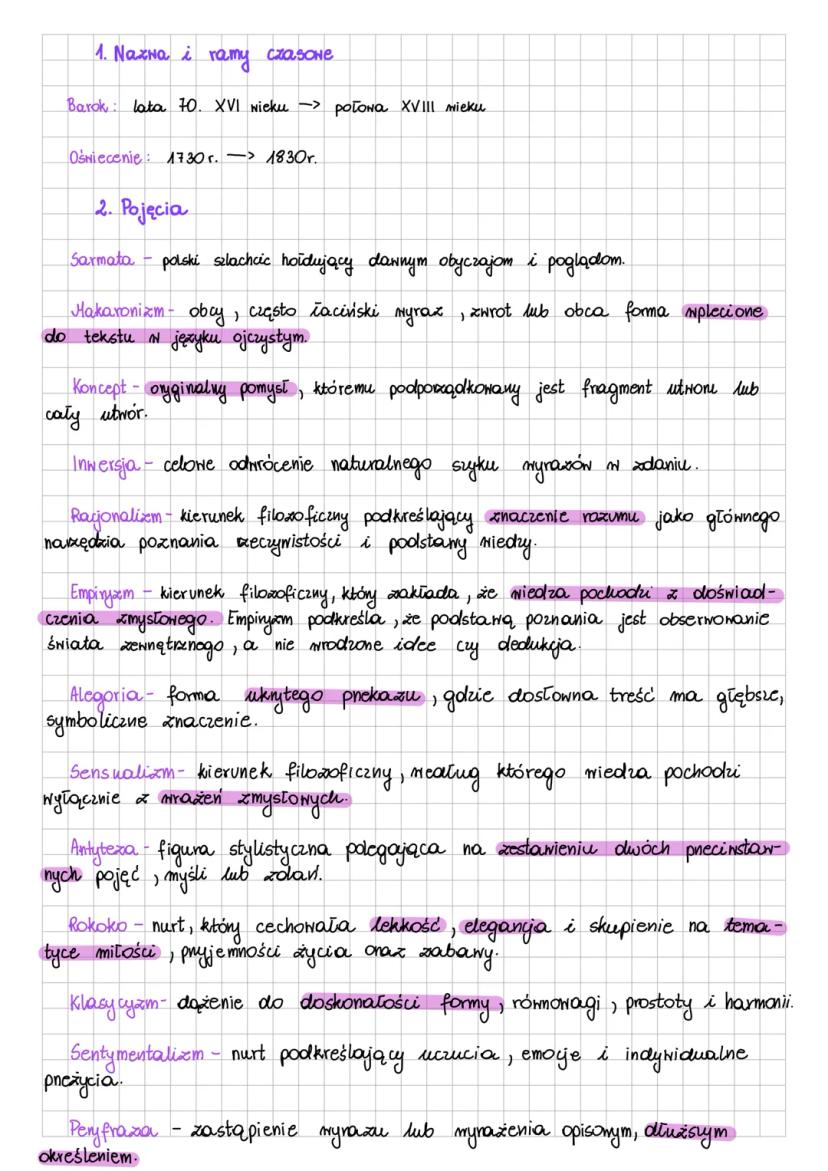 1. Nazwa i ramy czasowe
Barok: lata 70. XVI wieku —> połowa XVIII wieku
Oświecenie: 1730r. —> 1830r.
2. Pojęcia
Sarmata – polski szlachcic hołdujący dawnym obyczajom i poglądom.
Makaronizm - obcy, często łaciński wyraz, zwrot lub obca forma wplecione
do tekstu w języku ojczystym.
Koncept - oryginalny pomysł, któremu podporządkowany jest fragment utworu lub
cały utwór.
Inwersja - celowe odwrócenie naturalnego szyku wyrazów w zdaniu.
Racjonalizm - kierunek filozoficzny podkreślający znaczenie rozumu jako głównego
narzędzia poznania rzeczywistości i podstawy wiedzy.
Empiryzm – kierunek filozoficzny, który zakłada, że wiedza pochodzi z doświad-
czenia zmysłowego. Empiryzm podkreśla, że podstawą poznania jest obserwowanie
świata zewnętrznego, a nie wrodzone idee czy dedukcja.
Alegoria - forma ukrytego przekazu, gdzie dosłowna treść ma głębsze,
symboliczne znaczenie.
Sensualizm - kierunek filozoficzny, według którego wiedza pochodzi
wyłącznie z wrażeń zmysłowych.
Antyteza - figura stylistyczna polegająca na zestawieniu dwóch przeciwstaw-
nych pojęć, myśli lub zdań.
Rokoko – nurt, który cechowała lekkość, elegancja i skupienie na tema-
tyce miłości, przyjemności życia oraz zabawy.
Klasycyzm - dążenie do doskonałości formy, równowagi, prostoty i harmonii.
Sentymentalizm – nurt podkreślający uczucia, emocje i indywidualne
przeżycia.
Peryfraza – zastąpienie wyrazu lub wyrażenia opisowym, dłuższym
określeniem.